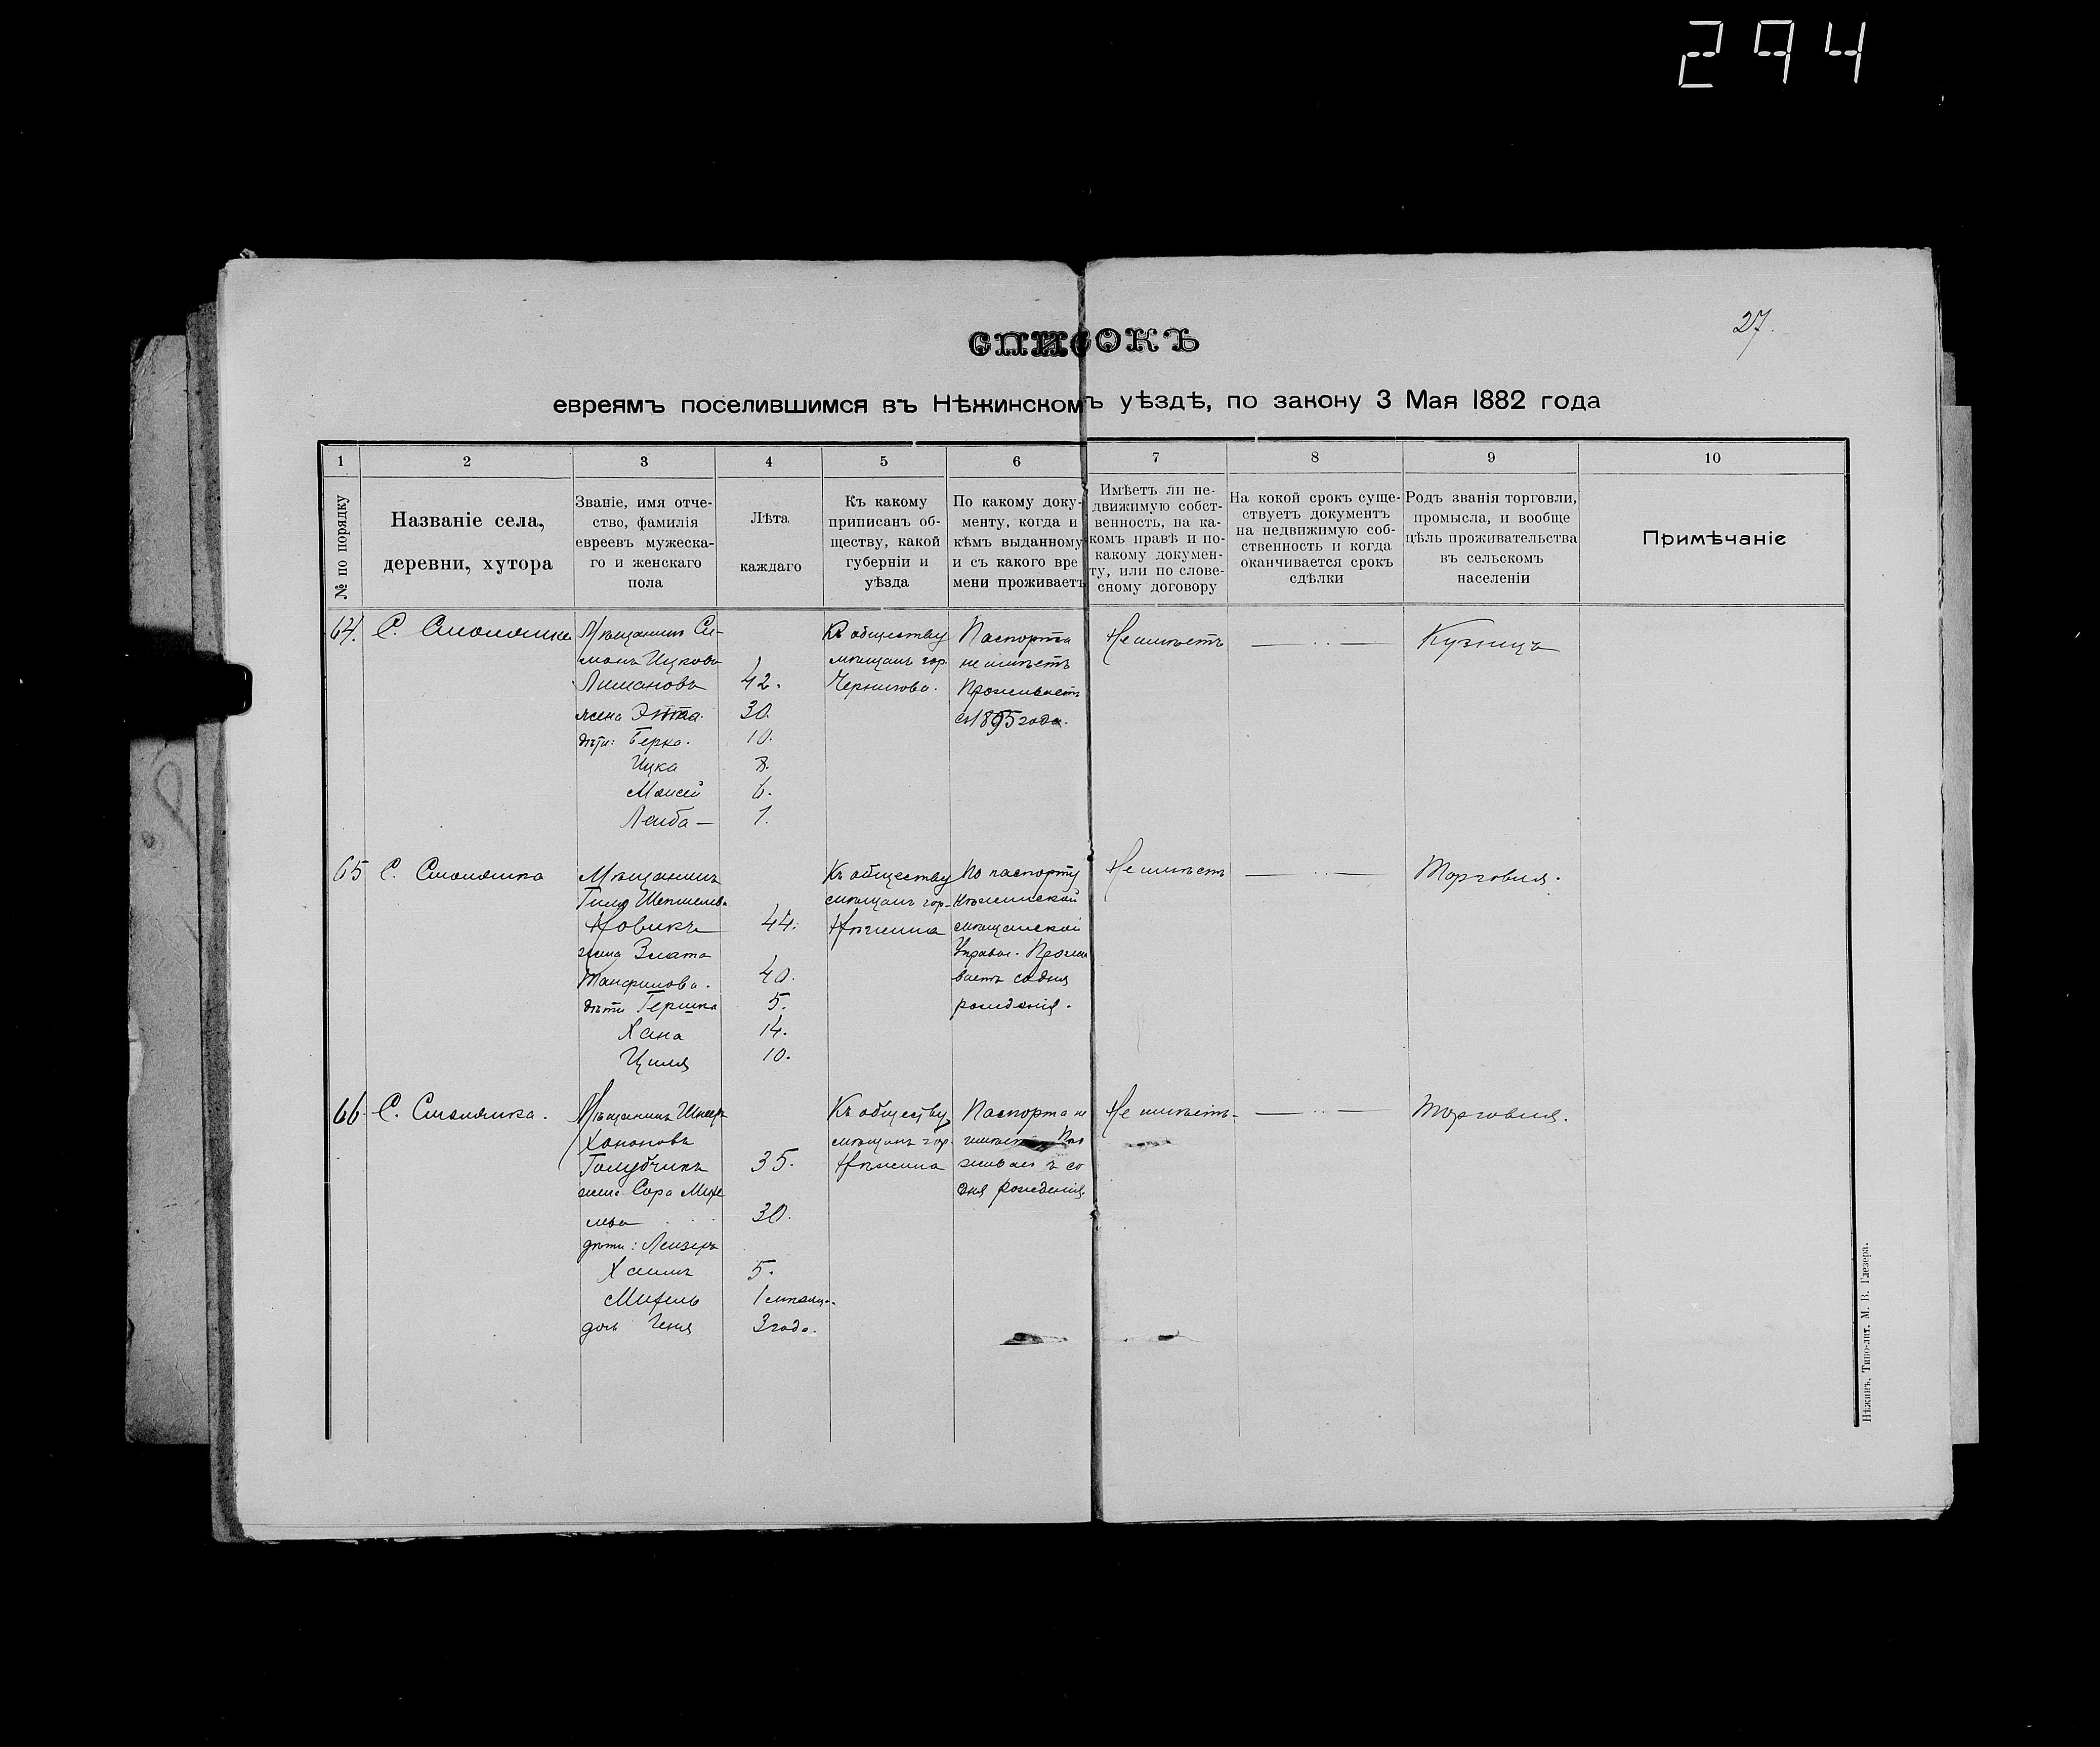 294
27.
СПИСОКЪ
евреямъ поселившимся въ Нѣжинскомъ уѣздѣ, по закону 3 Мая 1882 года
1 2 3 4 5 6 7 8 9 10
№ по порядку
Названіе села,
деревни, хутора
Званіе, имя отче-
ство, фамилія
евреевъ мужеска-
го и женскаго
пола
Лѣта
каждаго
Къ какому
приписанъ об-
ществу, какой
губерніи и
уѣзда
По какому доку-
менту, когда и
кѣмъ выданному
и съ какого вре
мени проживаетъ
Имѣетъ ли не-
движимую собст-
венность, на ка-
комъ правѣ и по-
какому докумен-
ту, или по слове-
сному договору
На кокой срокъ суще-
ствуетъ документъ
на недвижимую соб-
ственность и когда
оканчивается срокъ
сдѣлки
Родъ званія торговли,
промысла, и вообще
цѣль проживательства
въ сельскомъ
населеніи
Примѣчаніе
64.
С. Смолянка
Мѣщанинъ Си-
монъ Ицковъ
Лимановъ 42.
жена Этта. 30.
дѣти: Берко. 10.
Ицка 8.
Моисей 6.
Лейба — 1.
Къ обществу
мѣщанъ гор.
Чернигова.
Паспорта
не имѣетъ
Проживаетъ
съ 1895 года.
Не имѣетъ
Кузнецъ
65
С. Смолянка
Мѣщанинъ
Новикъ 44.
жена Злата
40.
дѣти Гершка 5.
Хана 14.
Циля 10.
Къ обществу
мѣщанъ гор.
Нѣжина
По паспорту
Нѣжинской
мѣщанской
Управы. Прожи
ваетъ со дня
рожденія.
Не имѣетъ
Торговля.
66.
С. Смолянка.
Мѣщанинъ
Ханановъ
Голубчикъ 35.
жена Сора Михе
лева 30.
дѣти: Лейзеръ
Хаимъ 5.
Михель 1 мѣсяц.
дочь Геня 3 года.
Къ обществу
мѣщанъ гор.
Нѣжина
Паспорта не
имѣетъ Про
живаетъ со
дня рожденія.
Не имѣетъ.
Торговля.
Нѣжинъ, Типо-лит. М. В. Глезера.